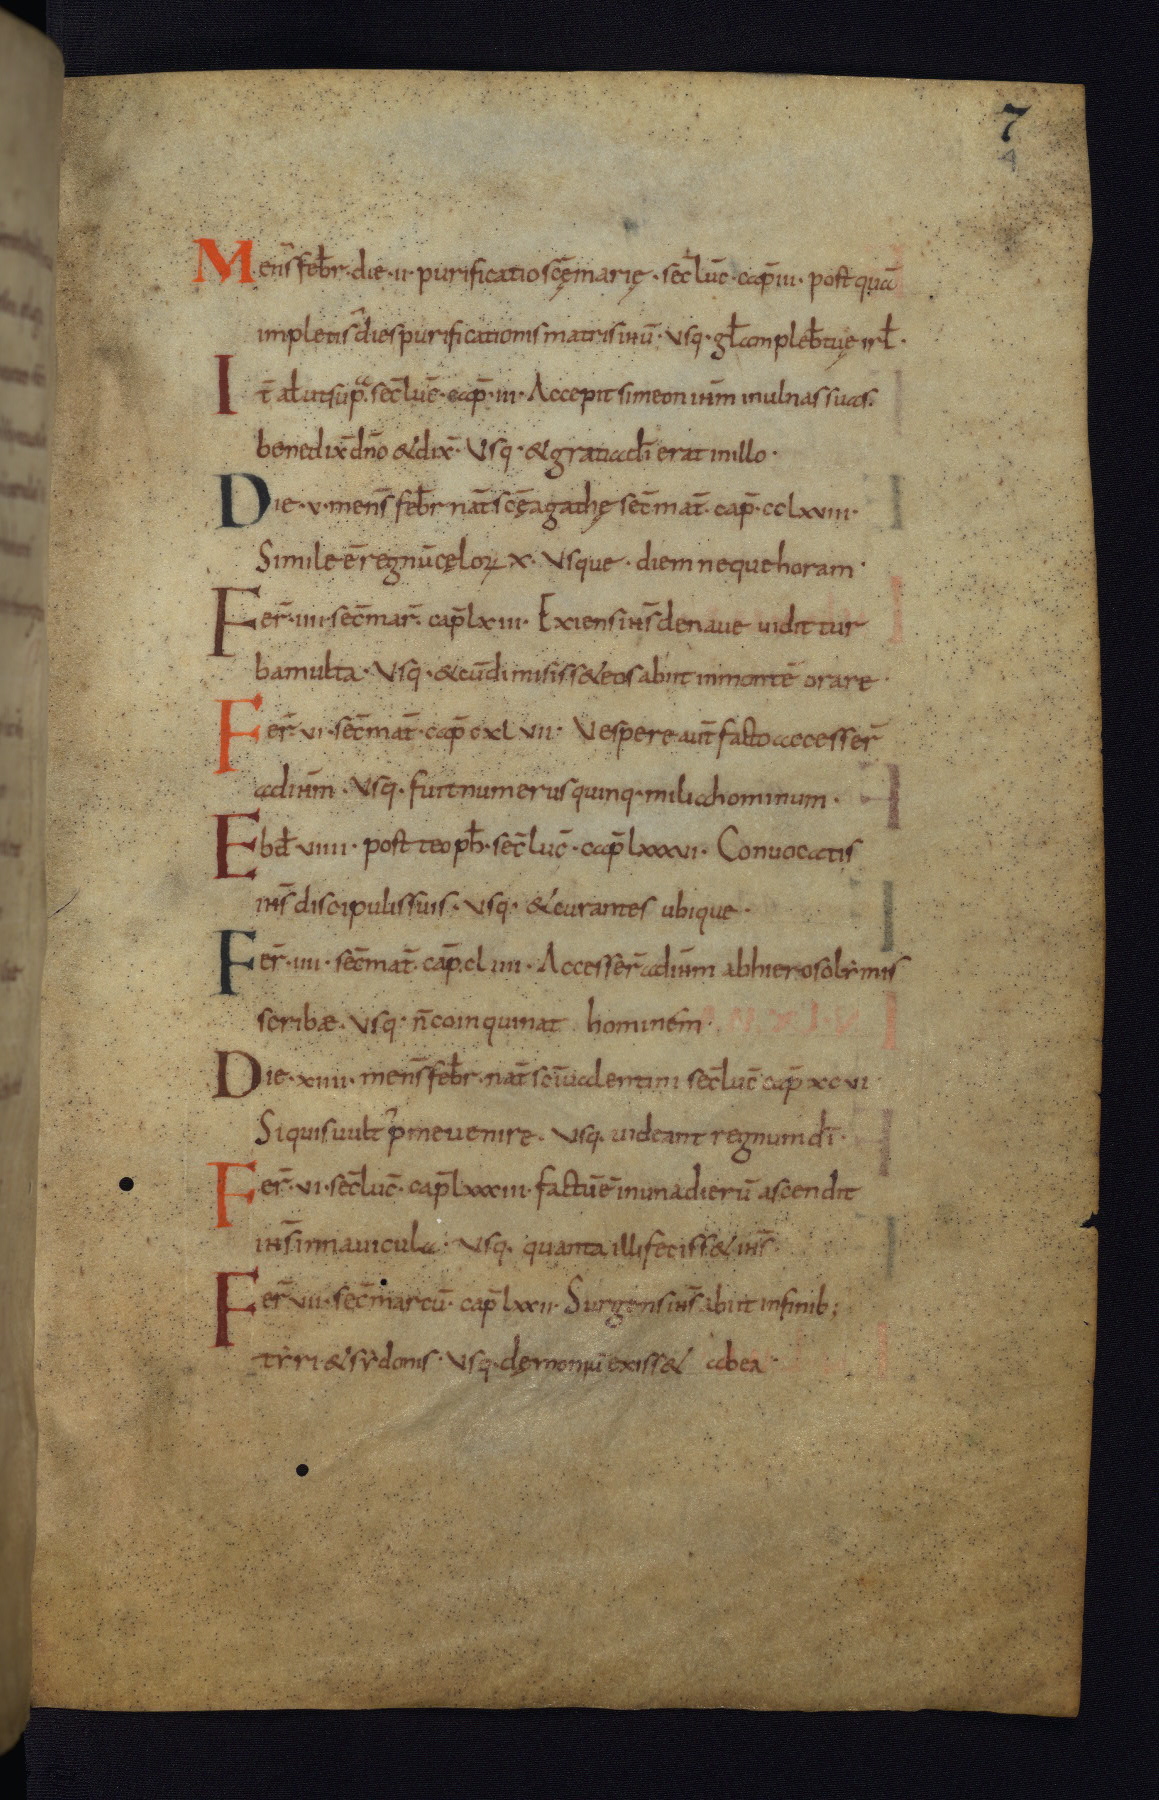 7
4
Mens̄ feb̄r · die · ii · purificatio sc̄ę marię · sec̄ luc̄ · cap̄ iii · postquā
impleti s̄ dies purificationis matris ihū · Usq · gl̄ am pleb̄ tuę isrl̄ ·
It̄ al̄ ut sup̄ᵃ · sec̄ luc̄ · cap̄ · iii · Accepit simeon ihm̄ in ulnas suas ·
benedix̄ dn̄o & dix̄ · Usq · & gratia dī erat in illo ·
Die · v · mens̄ feb̄r nat̄ sc̄ę agathę sec̄ mat̄ · cap̄ · cclxviii ·
Simile ē regnū cęloꝝ x · Usque · diem neque horam ·
Fer̄ · iiii · sec̄ mar̄ · cap̄ lxiii · Exiens ihs̄ de naue uidit tur
ba multa · Usq · & cū dimisiss& eos abiit in montē orare ·
Fer̄ · vi · sec̄ mat̄ · cap̄ cxlvii · Vespere aut̄ facto accesser̄
ad ihm̄ · Usq · fuit numerus quinq · milia hominum ·
Ebd̄ · viiii · post teoph̄ · sec̄ luc̄ · cap̄ lxxxvi · Conuocatis
ihs̄ discipulis suis · Usq · & curantes ubique ·
Fer̄ · iiii · sec̄ mat̄ · cap̄ · cliiii · Accesser̄ ad ihm̄ ab hierosolẏmis
scribæ · Usq · n̄ coinquinat hominem ·
Die · xiiii · mens̄ feb̄r · nat̄ scī ualentini sec̄ luc̄ cap̄ xcvi
Si quis uult p̄ me uenire · Usq · uideant regnum dī ·
Fer̄ · vi · sec̄ luc̄ · cap̄ lxxxiii · factū ē in una dierū ascendit
ihs̄ in nauicula · Usq · quanta illi feciss& ihs̄ ·
Fer̄ vii · sec̄ marcū · cap̄ lxxii · Surgens ihs̄ abiit in finib;
tẏri & sẏdonis · Usq · dęmoniū exiss& ab ea ·